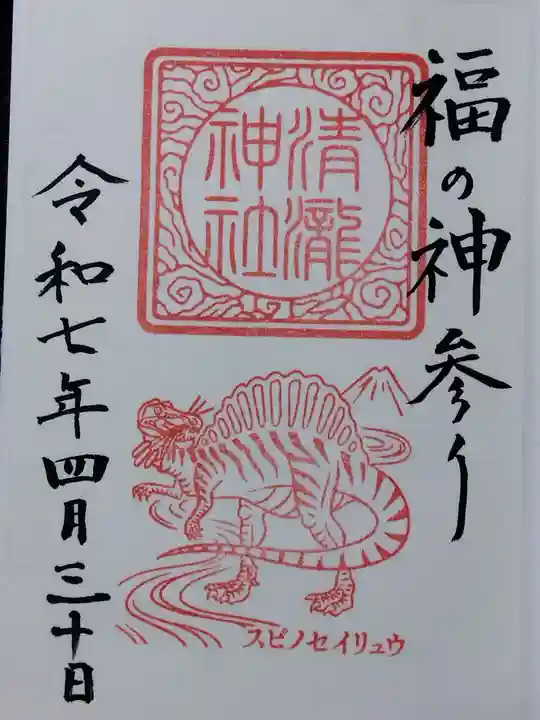 福の神参り
清瀧
神社
スピノセイリュウ
令和七年四月三十日